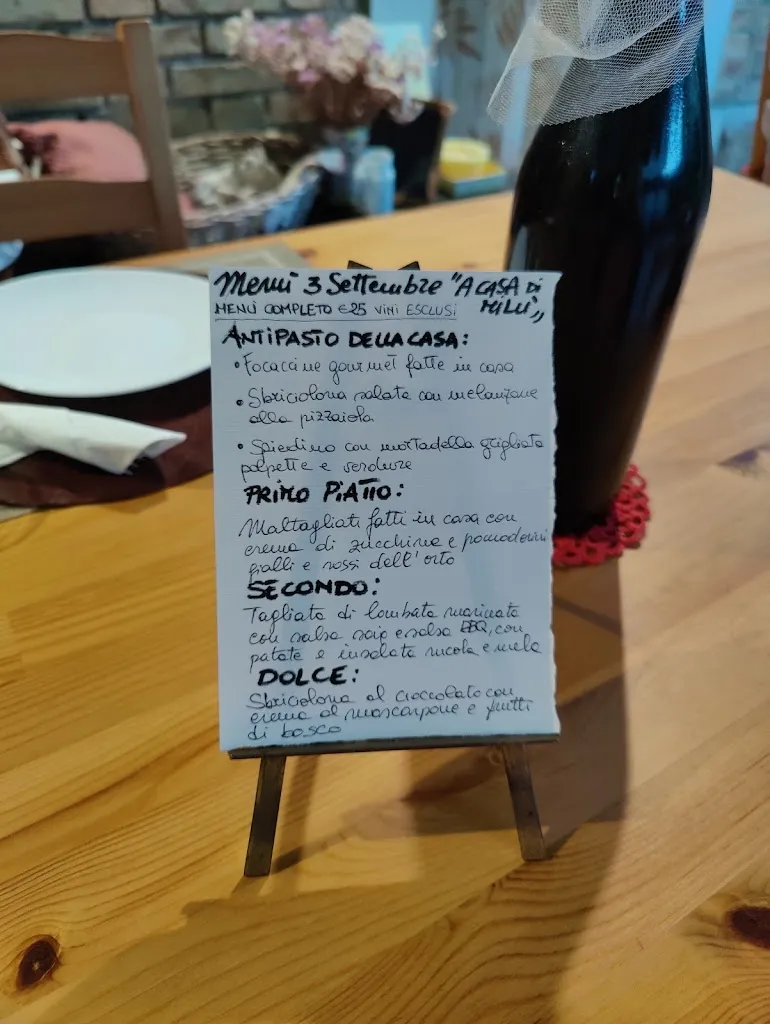 Menù 3 Settembre "A CASA DI
MILÙ"
MENÙ COMPLETO €25 VINI ESCLUSI
ANTIPASTO DELLA CASA:
• Focaccine gourmet fatte in casa
• Sbriciolona salata con melanzane
alla pizzaiola
• Spiedino con mortadella grigliata
polpette e verdure
PRIMO PIATTO:
Maltagliati fatti in casa con
crema di zucchine e pomodorini
gialli e rossi dell'orto
SECONDO:
Tagliata di lombata marinata
con salsa soia e salsa BBQ, con
patate e insalata rucola e mela
DOLCE:
Sbriciolona al cioccolato con
crema al mascarpone e frutti
di bosco